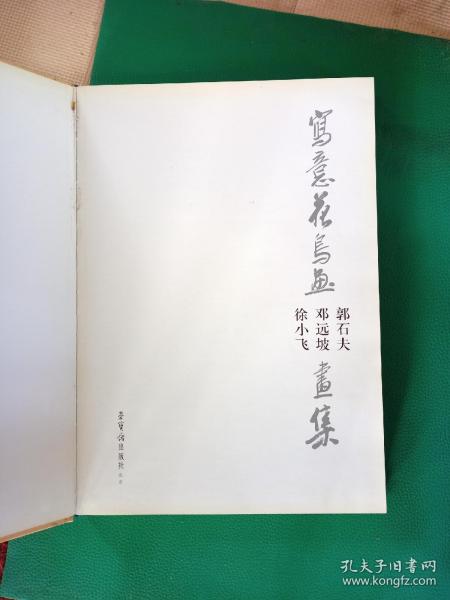 寫意花鸟畫
郭石夫
邓远坡
徐小飞
畫集
荣宝斋出版社
孔夫子旧书网
www.kongfz.com